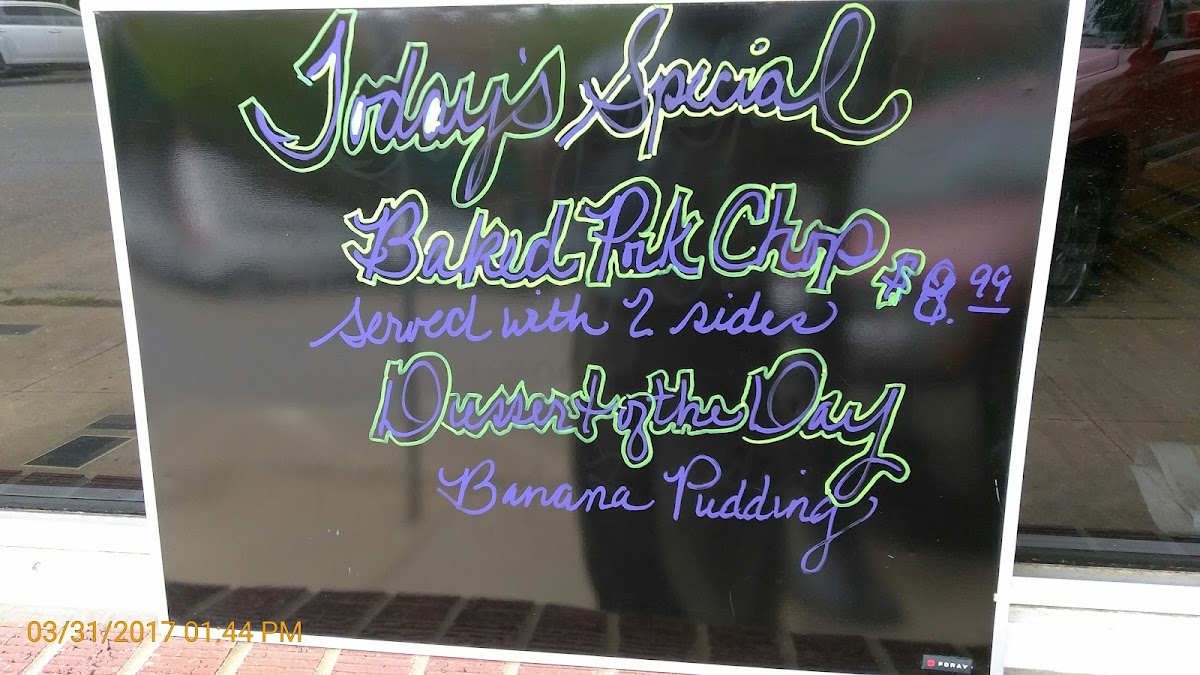 Today's Special
Baked Pork Chop $8.99
served with 2 sides
Dessert of the Day
Banana Pudding
FORAY
03/31/2017 01:44 PM